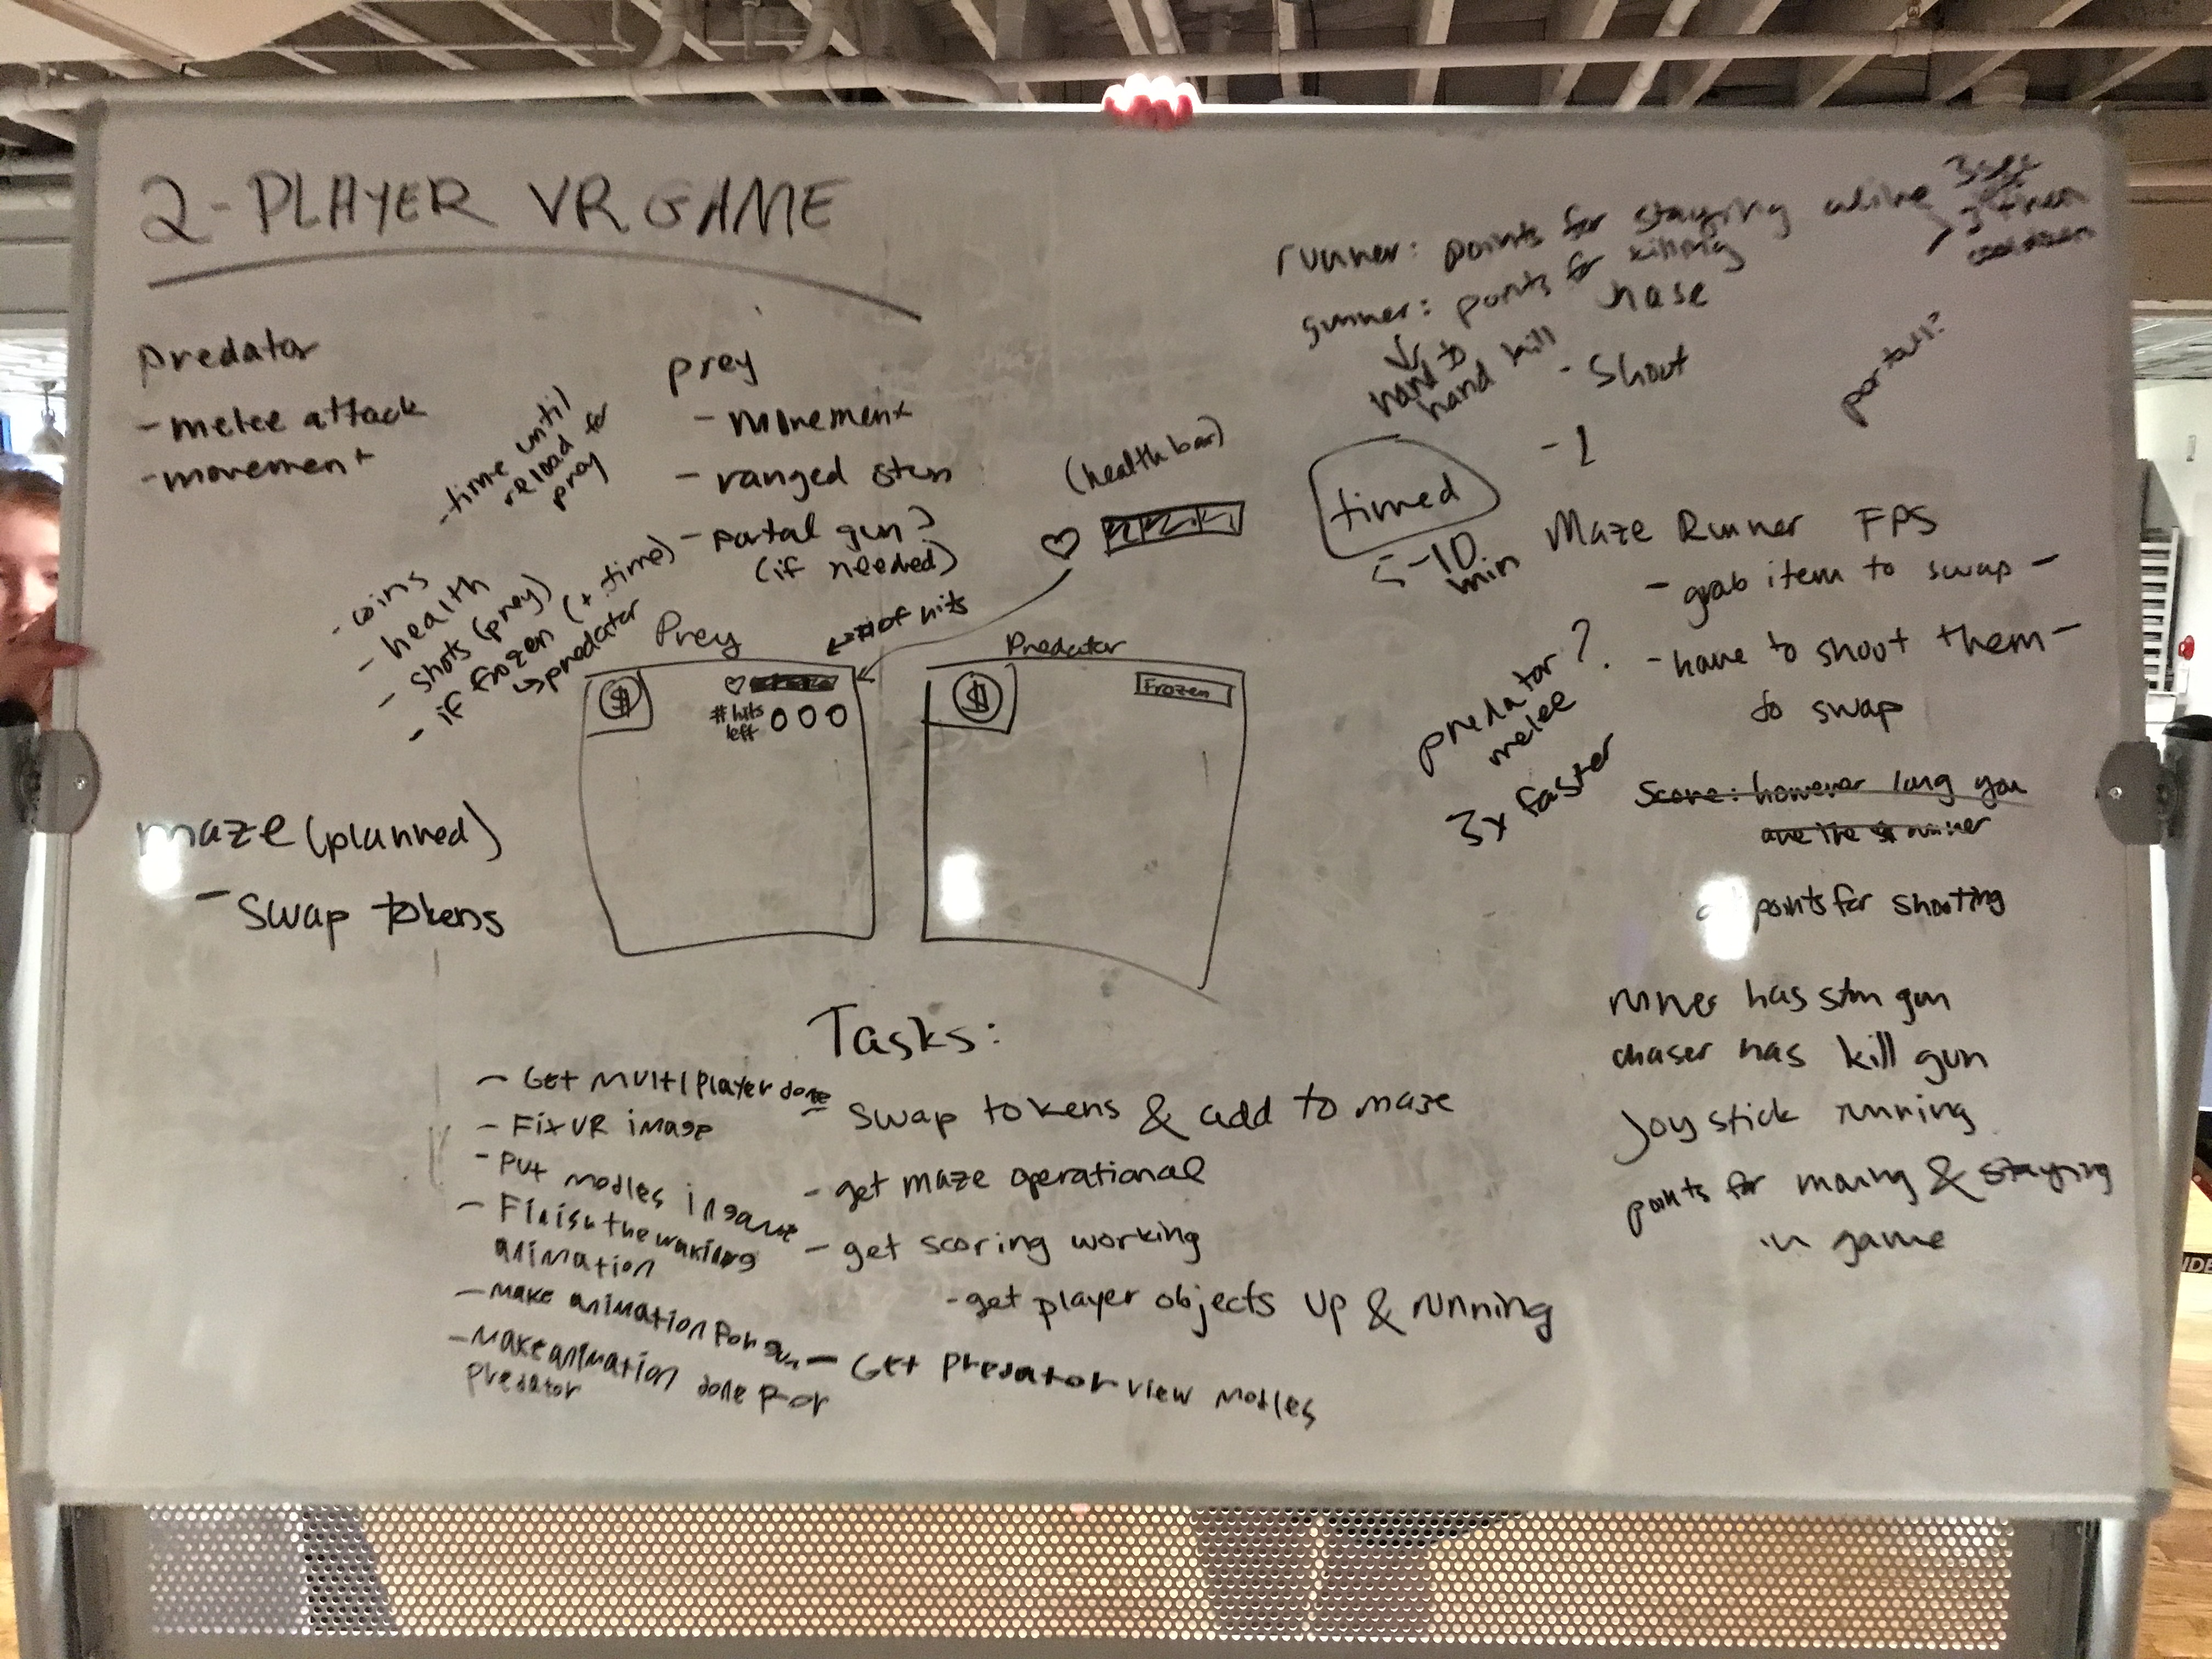 2-PLAYER VR GAME
predator
- melee attack
- movement
- time until
reload for
prey
prey
- movement
- ranged stun
- portal gun?
(if needed)
- coins
- health
- shots (prey)
- if frozen (+ time)
↳ predator
(health bar)
♡
← # of hits
Prey
$
♡
# hits
left
Predator
$
Frozen
maze (planned)
- swap tokens
runner: points for staying alive
3 sec
cooldown
gunner: points for killing
hand to
hand kill
chase
- shoot
portal?
timed
5-10
min
Maze Runner FPS
- grab item to swap -
- have to shoot them -
to swap
predator?
melee
3x faster
Score: however long you
are the runner
points for shooting
runner has stun gun
chaser has kill gun
Joystick running
points for moving & staying
in game
Tasks:
- Get multiplayer done
- Fix VR image
- Put modles in game
- Finish the waking
animation
- make animation for gun
- Make animation done for
predator
- swap tokens & add to maze
- get maze operational
- get scoring working
- get player objects up & running
- Get predator view modles